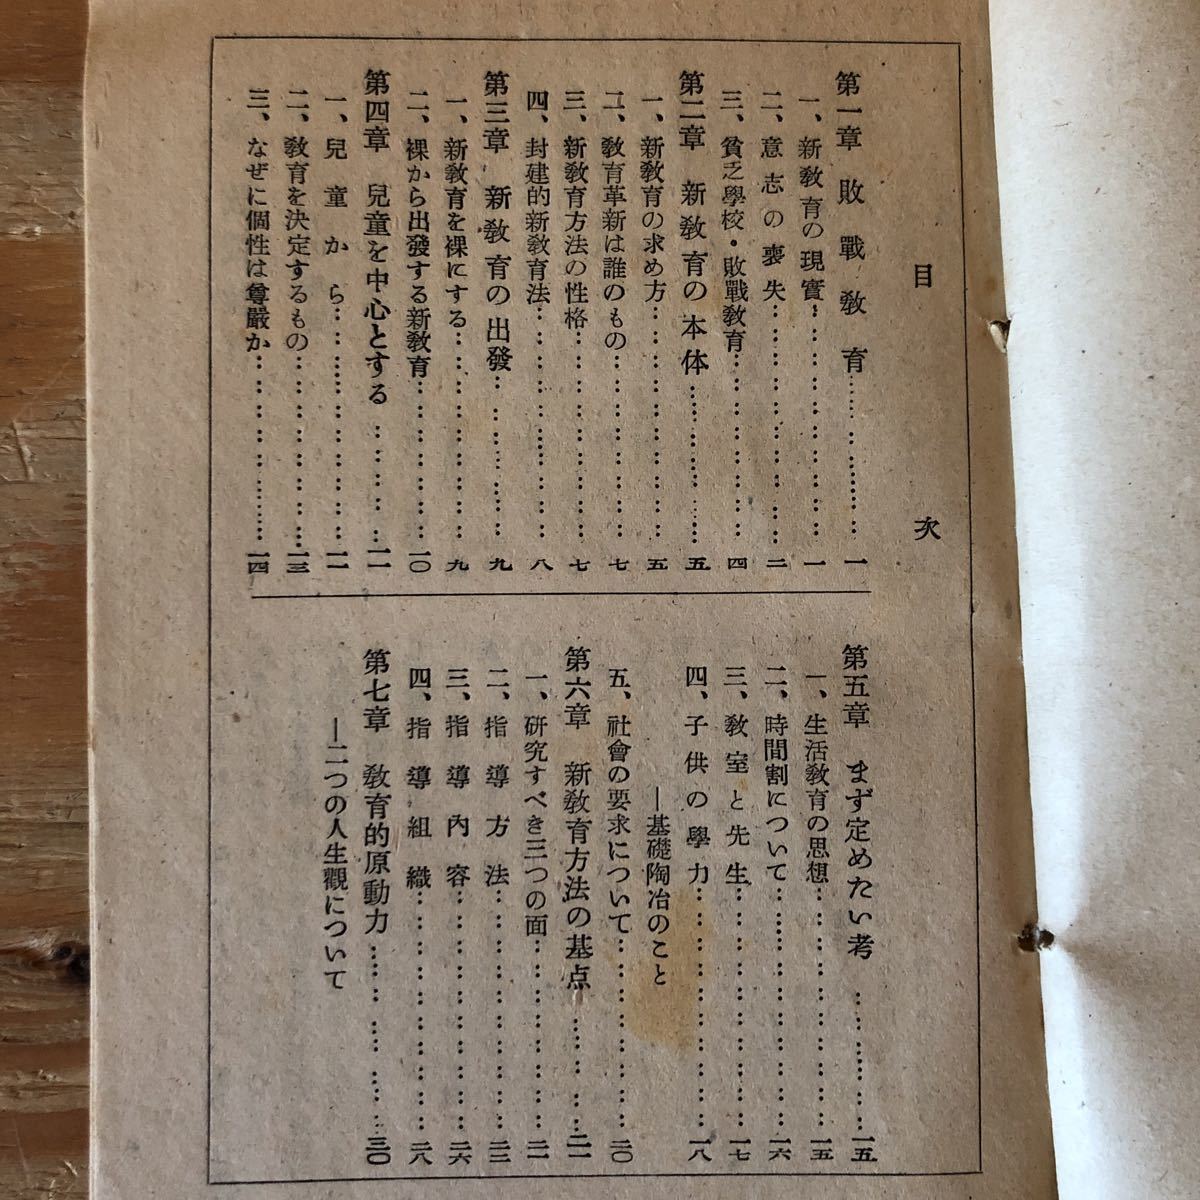 目次
第一章 敗戰敎育……………一
一、新敎育の現實……………一
二、意志の喪失……………二
三、貧乏學校・敗戰敎育……………四
第二章 新敎育の本体……………五
一、新敎育の求め方……………五
二、敎育革新は誰のもの……………七
三、新敎育方法の性格……………七
四、封建的新敎育法……………八
第三章 新敎育の出發……………九
一、新敎育を裸にする……………九
二、裸から出發する新敎育……………一〇
第四章 兒童を中心とする……………一一
一、兒童から……………一一
二、敎育を決定するもの……………一三
三、なぜに個性は尊嚴か……………一四
第五章 まず定めたい考……………一五
一、生活敎育の思想……………一五
二、時間割について……………一六
三、敎室と先生……………一七
四、子供の學力……………一八
―基礎陶冶のこと
五、社會の要求について……………二〇
第六章 新敎育方法の基点……………二一
一、研究すべき三つの面……………二一
二、指導方法……………二三
三、指導內容……………二六
四、指導組織……………二八
第七章 敎育的原動力……………三〇
―二つの人生觀について